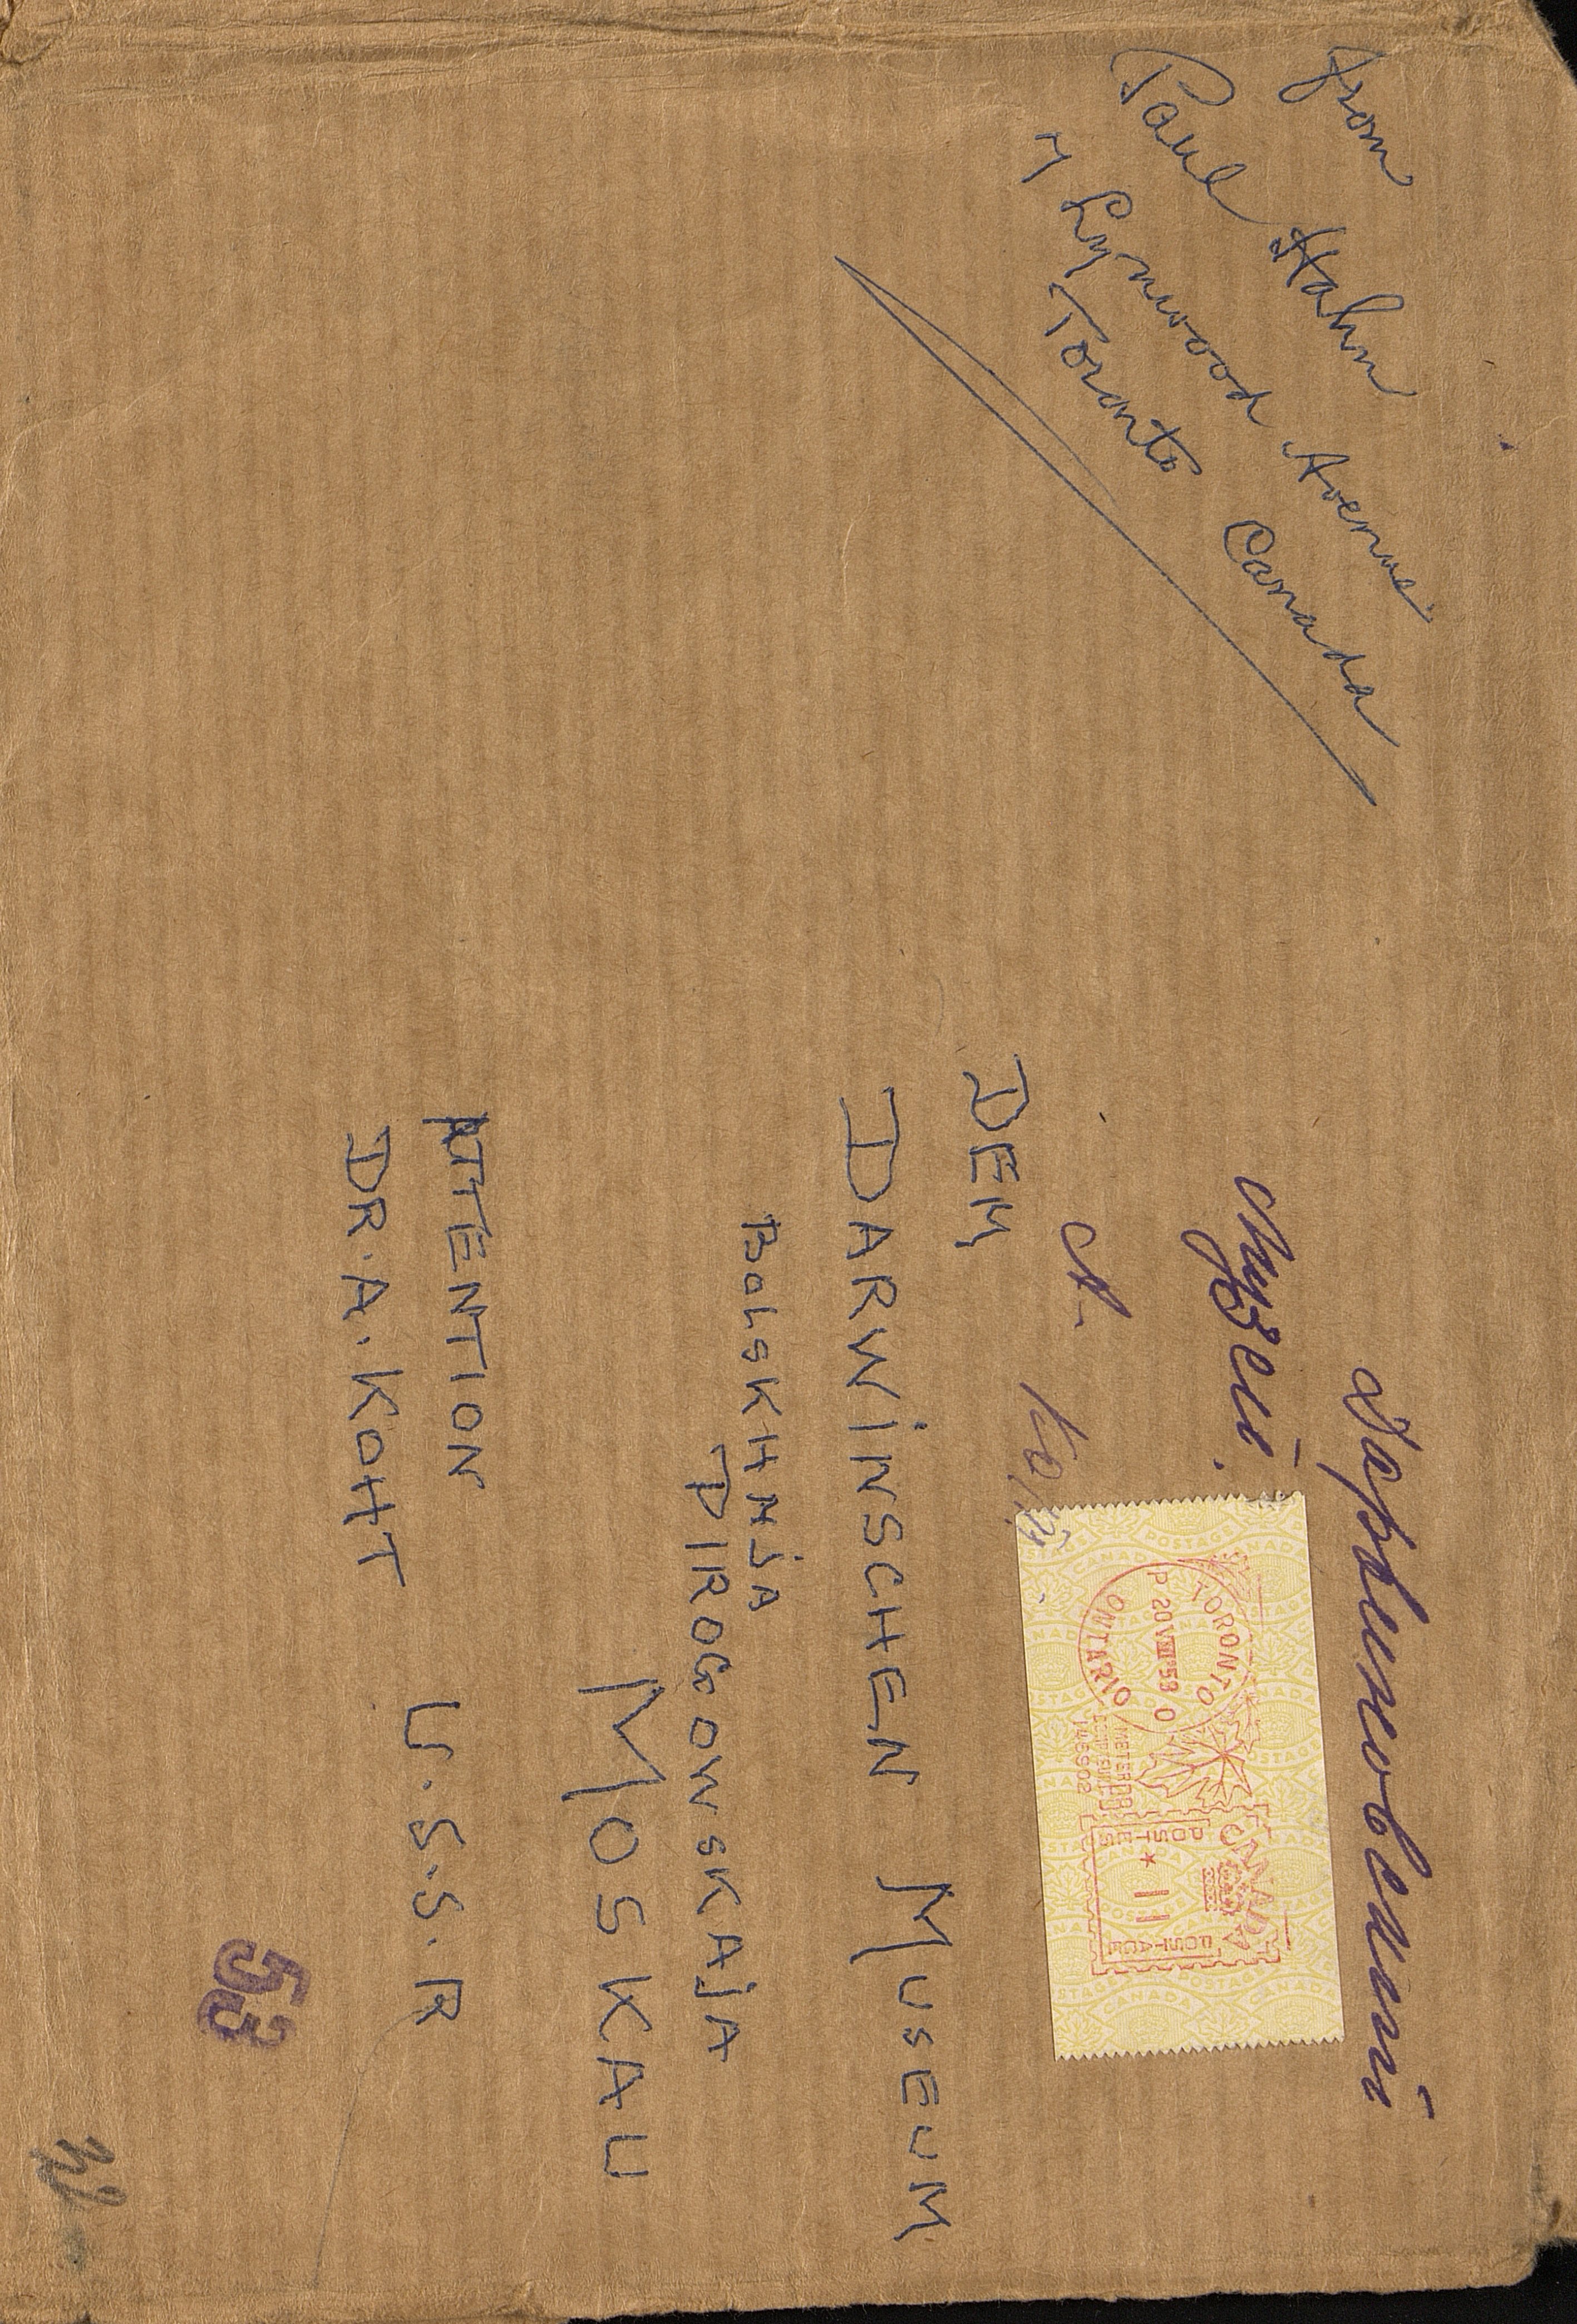 from
Paul Hahn
7 Lynwood Avenue
Toronto Canada
Дарвиновский
музей.
А. Котс
TORONTO
P 20 VIII 58 0
ONTARIO
METER
145902
CANADA
POSTES
11
POSTAGE
DEM
DARWINSCHEN MUSEUM
BOLSKHNJA
PIROGOWSKAJA
MOSKAU
ATTENTION
U.S.S.R
DR. A. KOHT
53